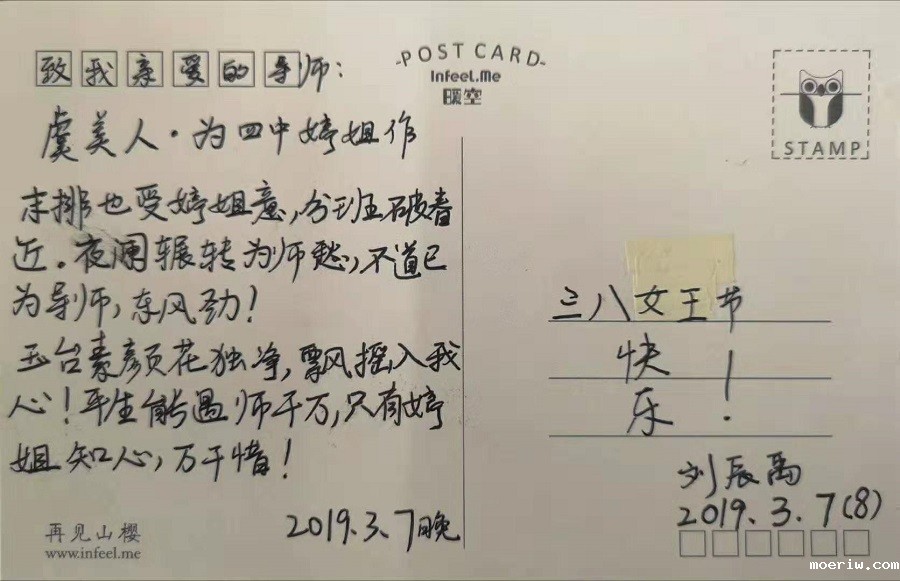 致我亲爱的导师：
虞美人·为四中婷姐作
末排也受婷姐意，分班五破春
近。夜阑辗转为师愁，不道已
为导师，东风劲！
玉台素颜花独净，飘风摇入我
心！平生能遇师千万，只有婷
姐知心，万千惜！
2019.3.7晚
再见山樱
www.infeel.me
-POST CARD-
Infeel.Me
暖空
STAMP
三八女王节
快
乐！
刘辰禹
2019.3.7(8)
moeriw.com